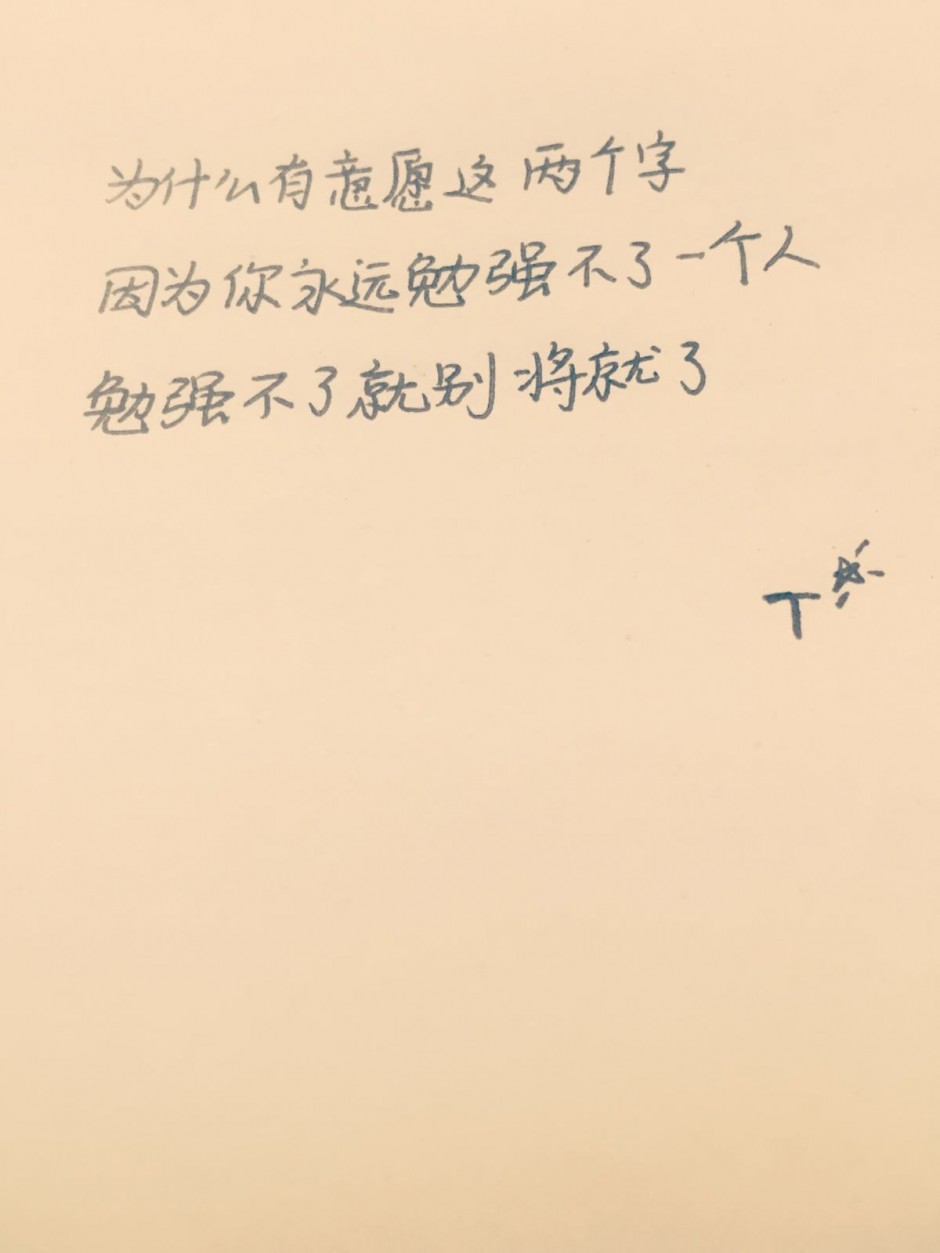 为什么有意愿这两个字
因为你永远勉强不了一个人
勉强不了就别将就了
T